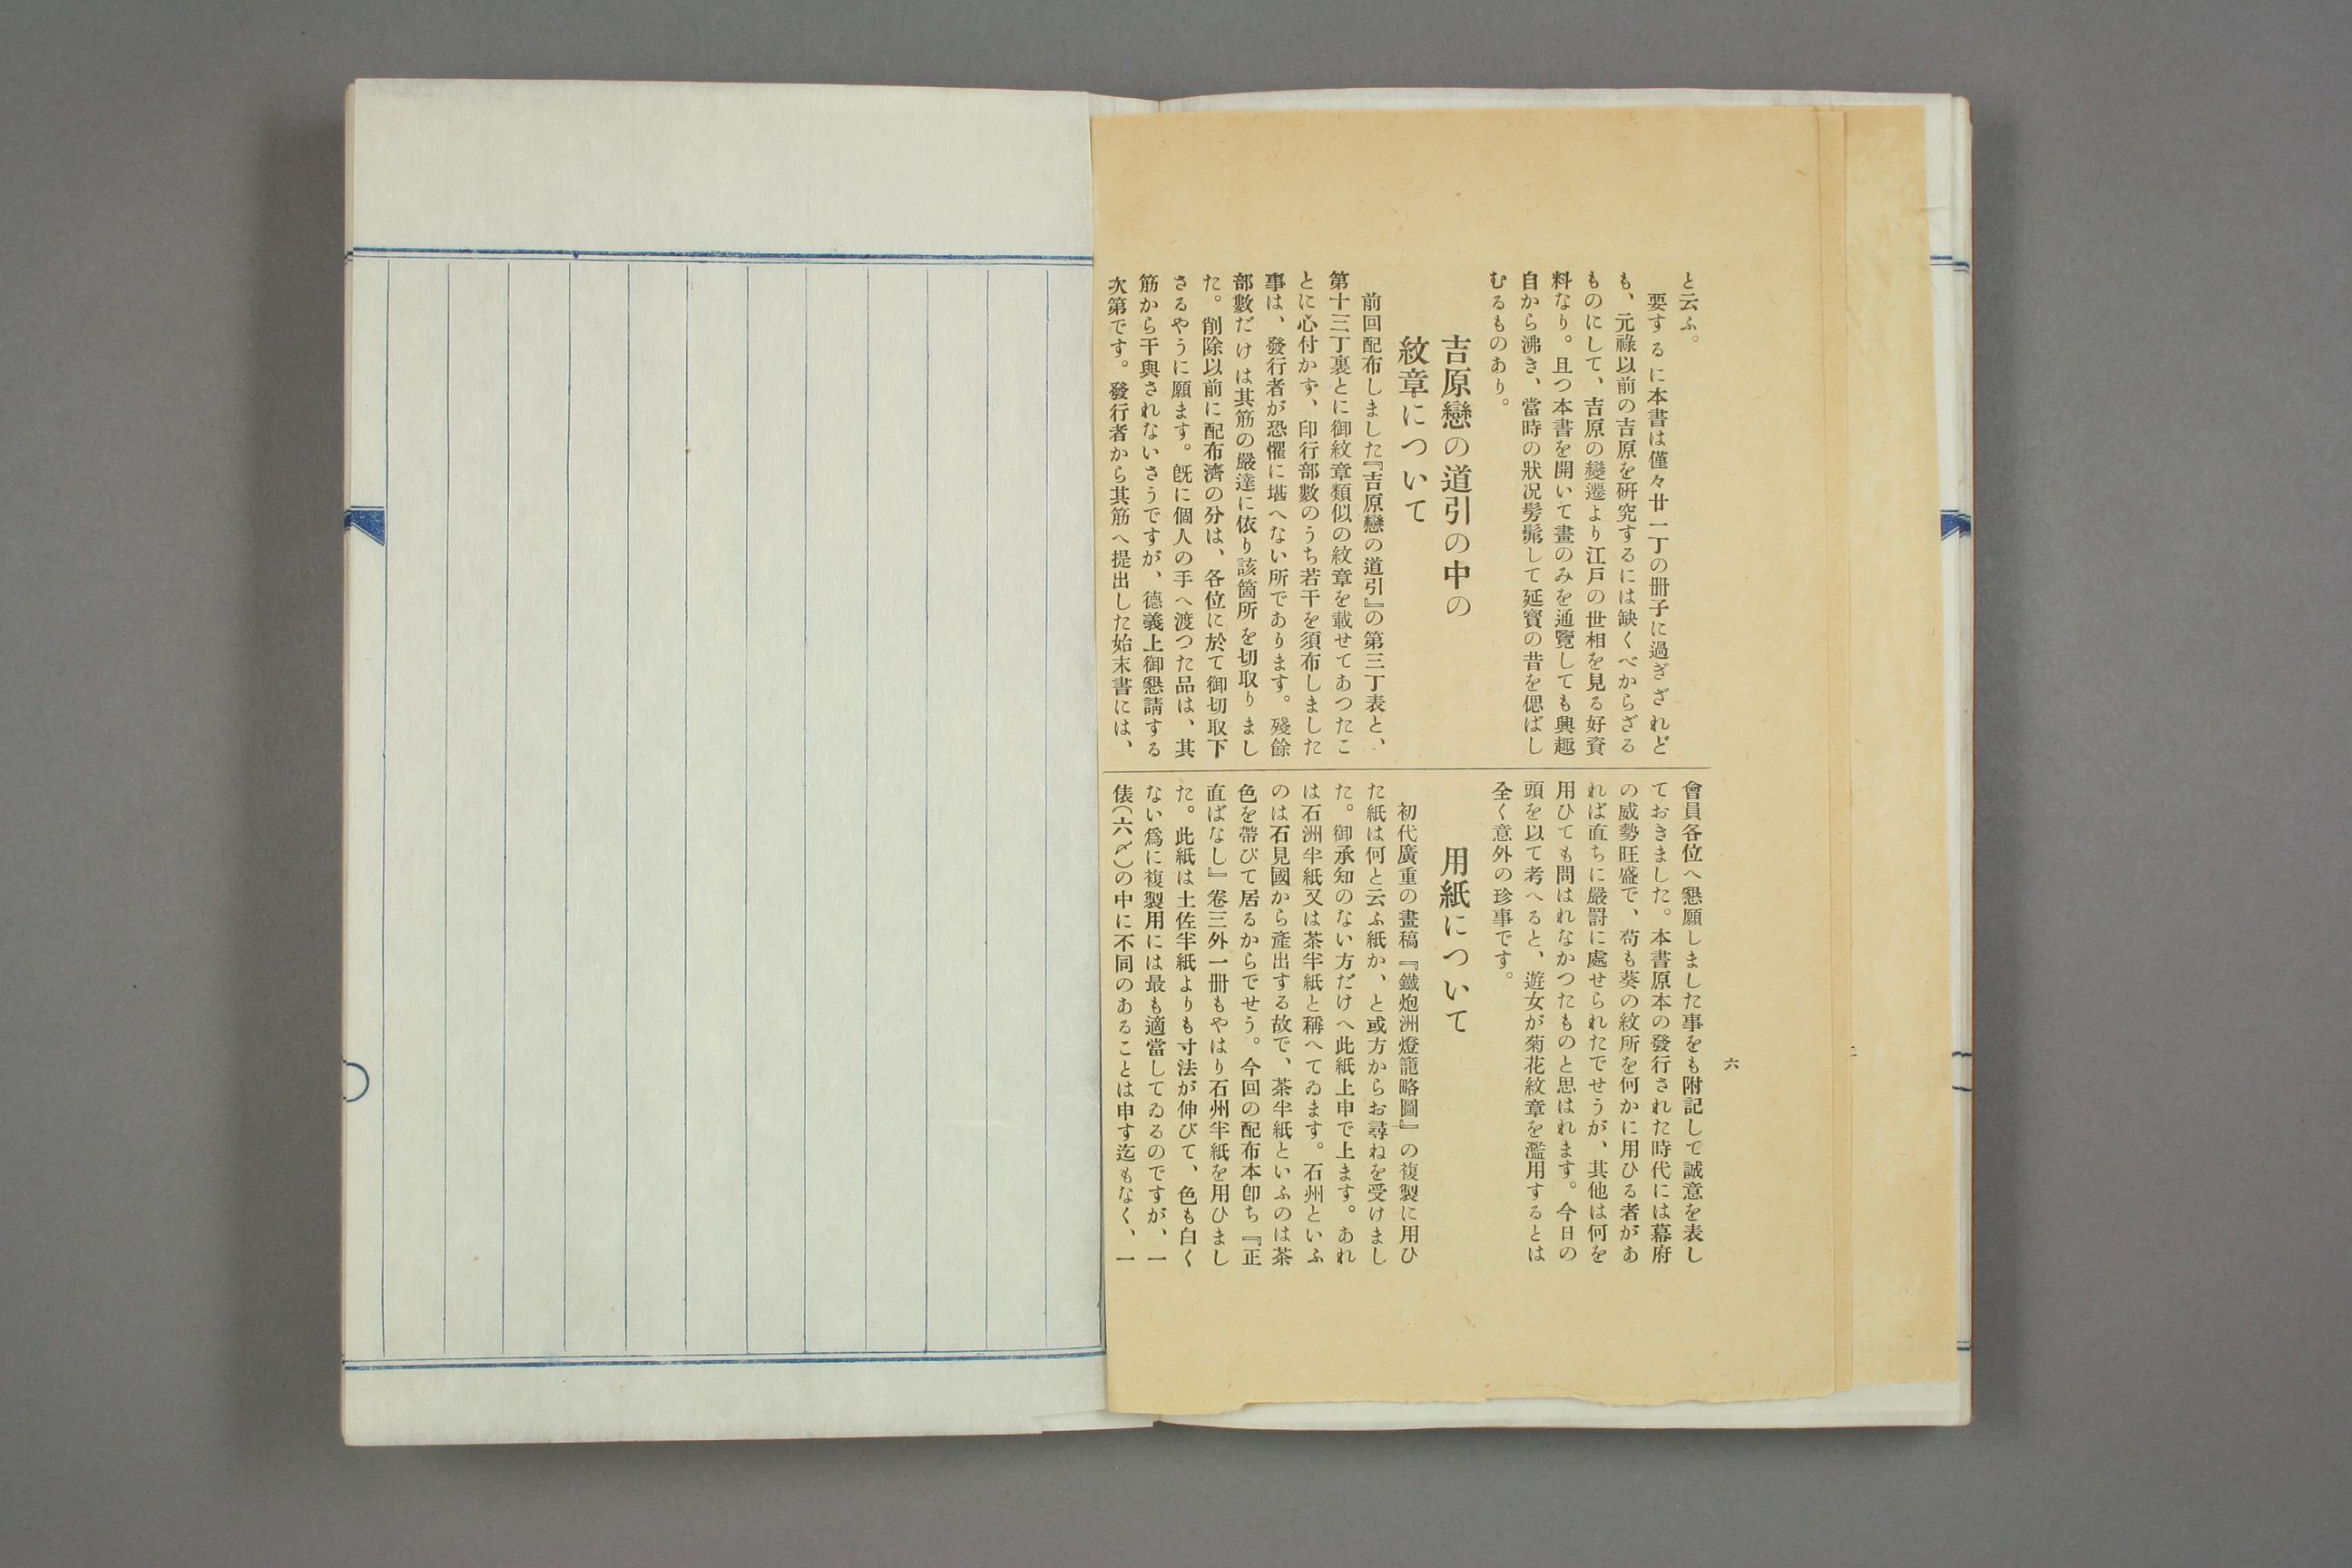 と云ふ。
要するに本書は僅々廿一丁の冊子に過ぎざれど
も、元祿以前の吉原を硏究するには缺くべからざる
ものにして、吉原の變遷より江戸の世相を見る好資
料なり。且つ本書を開いて畫のみを通覽しても興趣
自から沸き、當時の狀況髣髴して延寶の昔を偲ばし
むるものあり。
吉原戀の道引の中の
紋章について
前回配布しました『吉原戀の道引』の第三丁表と、
第十三丁裏とに御紋章類似の紋章を載せてあつたこ
とに心付かず、印行部數のうち若干を須布しました
事は、發行者が恐懼に堪へない所であります。殘餘
部數だけは其筋の嚴達に依り該箇所を切取りまし
た。削除以前に配布濟の分は、各位に於て御切取下
さるやうに願ます。旣に個人の手へ渡つた品は、其
筋から干與されないさうですが、德義上御懇請する
次第です。發行者から其筋へ提出した始末書には、
會員各位へ懇願しました事をも附記して誠意を表し
ておきました。本書原本の發行された時代には幕府
の威勢旺盛で、苟も葵の紋所を何かに用ひる者があ
れば直ちに嚴罸に處せられたでせうが、其他は何を
用ひても問はれなかつたものと思はれます。今日の
頭を以て考へると、遊女が菊花紋章を濫用するとは
全く意外の珍事です。
用紙について
初代廣重の畫稿『鐵炮洲燈籠略圖』の複製に用ひ
た紙は何と云ふ紙か、と或方からお尋ねを受けまし
た。御承知のない方だけへ此紙上申で上ます。あれ
は石洲半紙又は茶半紙と稱へてゐます。石州といふ
のは石見國から產出する故で、茶半紙といふのは茶
色を帶びて居るからでせう。今回の配布本卽ち『正
直ばなし』卷三外一冊もやはり石州半紙を用ひまし
た。此紙は土佐半紙よりも寸法が伸びて、色も白く
ない爲に複製用には最も適當してゐるのですが、一
俵(六〆)の中に不同のあることは申す迄もなく、一
六